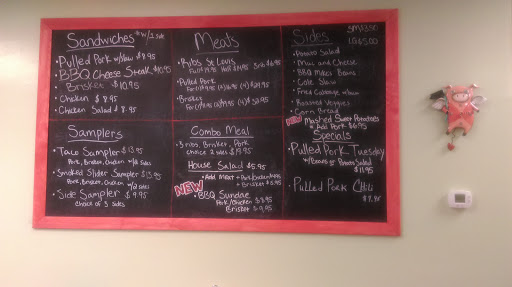 Sandwiches *w/1 side
Pulled Pork w/slaw $8.95
BBQ Cheese Steak $10.95
Brisket $10.95
Chicken $8.95
Chicken Salad $8.95
Samplers
Taco Sampler $13.95
Pork, Brisket, Chicken w/2 sides
Smoked Slider Sampler $13.95
Pork, Brisket, Chicken w/2 sides
Side Sampler $9.95
choice of 3 sides
Meats
Ribs St Louis
Pulled Pork
Brisket
Combo Meal
3 ribs, Brisket, Pork
choice 2 sides
House Salad $5.95
Add Meat
Brisket $5.95
NEW
BBQ Sundae
Pork/Chicken $8.95
Brisket $9.95
Sides
SM $3.50
LG $5.00
Potato Salad
Mac and Cheese
BBQ Baked Beans
Cole Slaw
Fried Cabbage w/Bacon
Roasted Veggies
Corn Bread
NEW Mashed Sweet Potatoes
Add Pork $6.95
Specials
Pulled Pork Tuesday
w/Beans or Potato Salad
$11.95
Pulled Pork Chili
$7.95